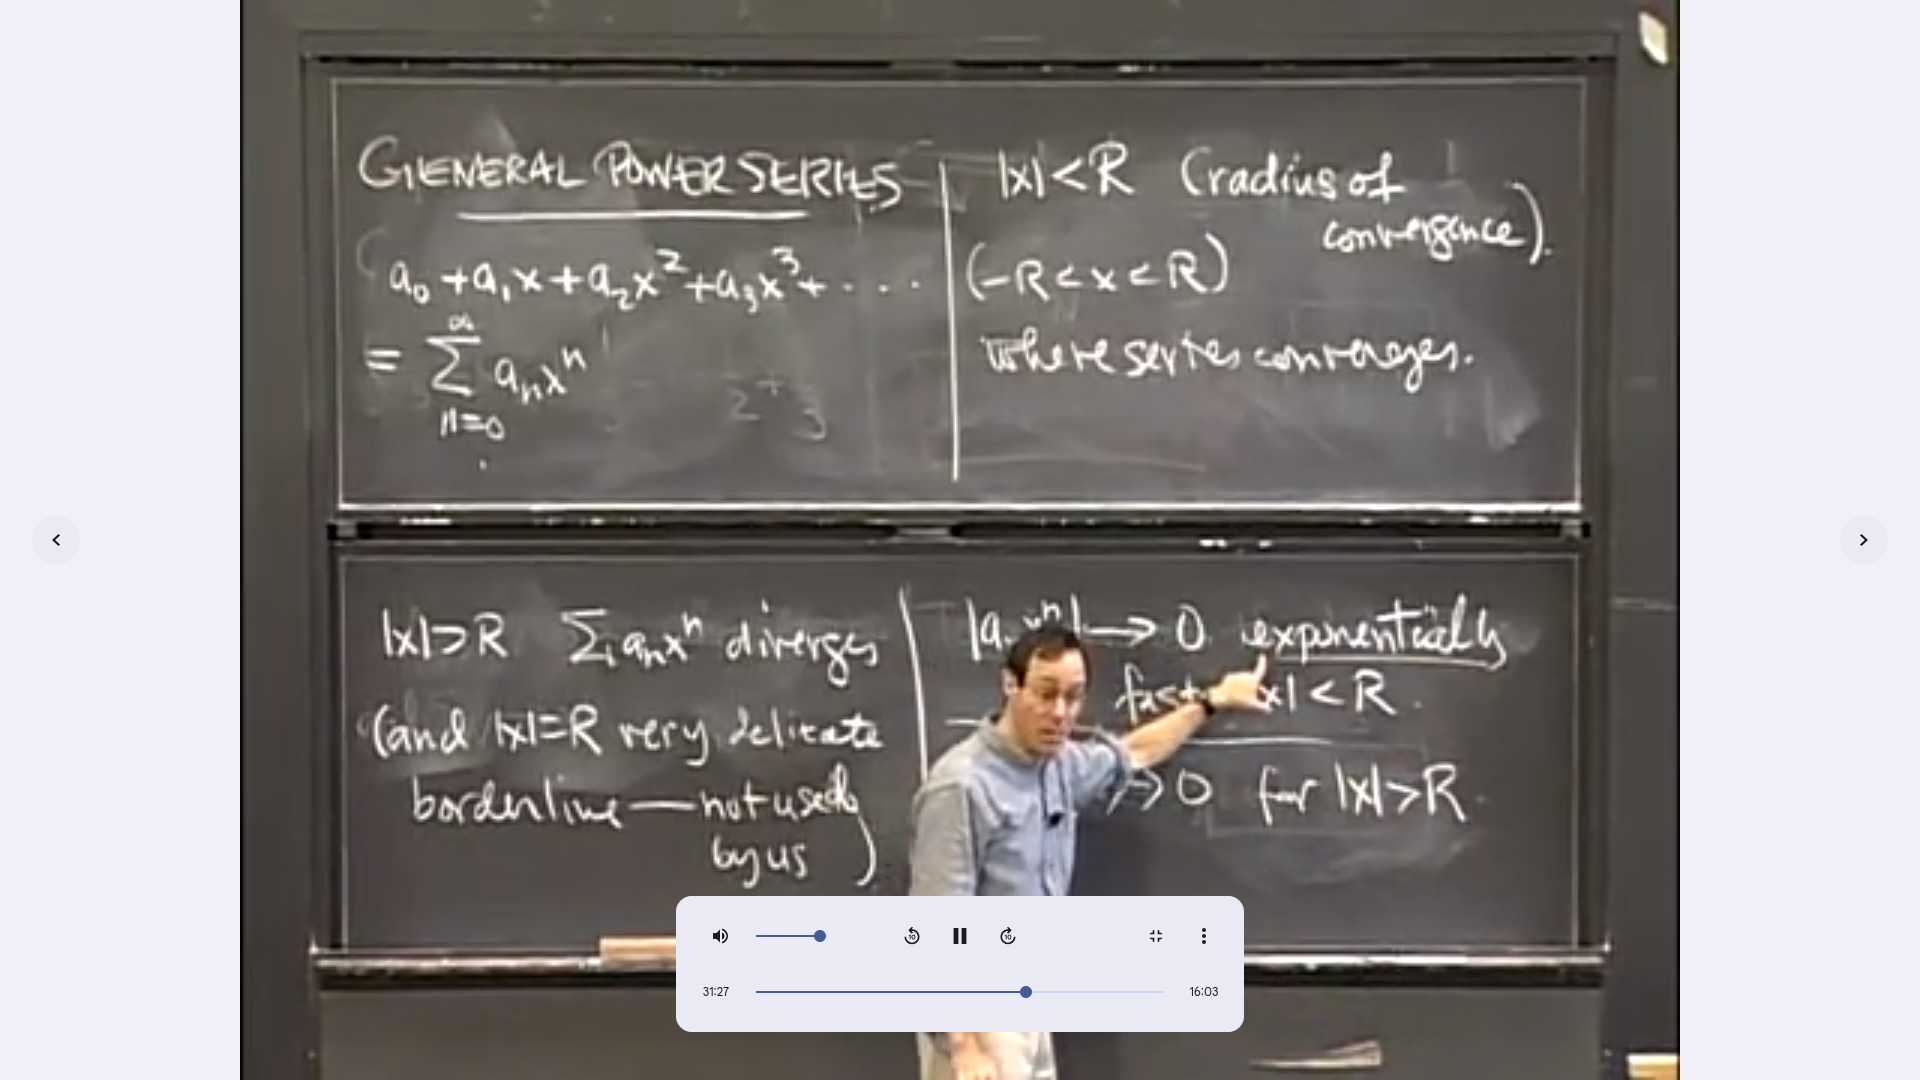 GENERAL POWER SERIES
a₀ + a₁x + a₂x² + a₃x³ + ....
= ∑ₙ₌₀^∞ aₙxⁿ
|x| < R (radius of
convergence).
(-R < x < R)
where series converges.
|x| > R ∑ aₙxⁿ diverges
(and |x| = R very delicate
borderline — not used
by us)
xⁿ| → 0 exponentially
fast |x| < R.
→ 0 for |x| > R
10
10
31:27
16:03